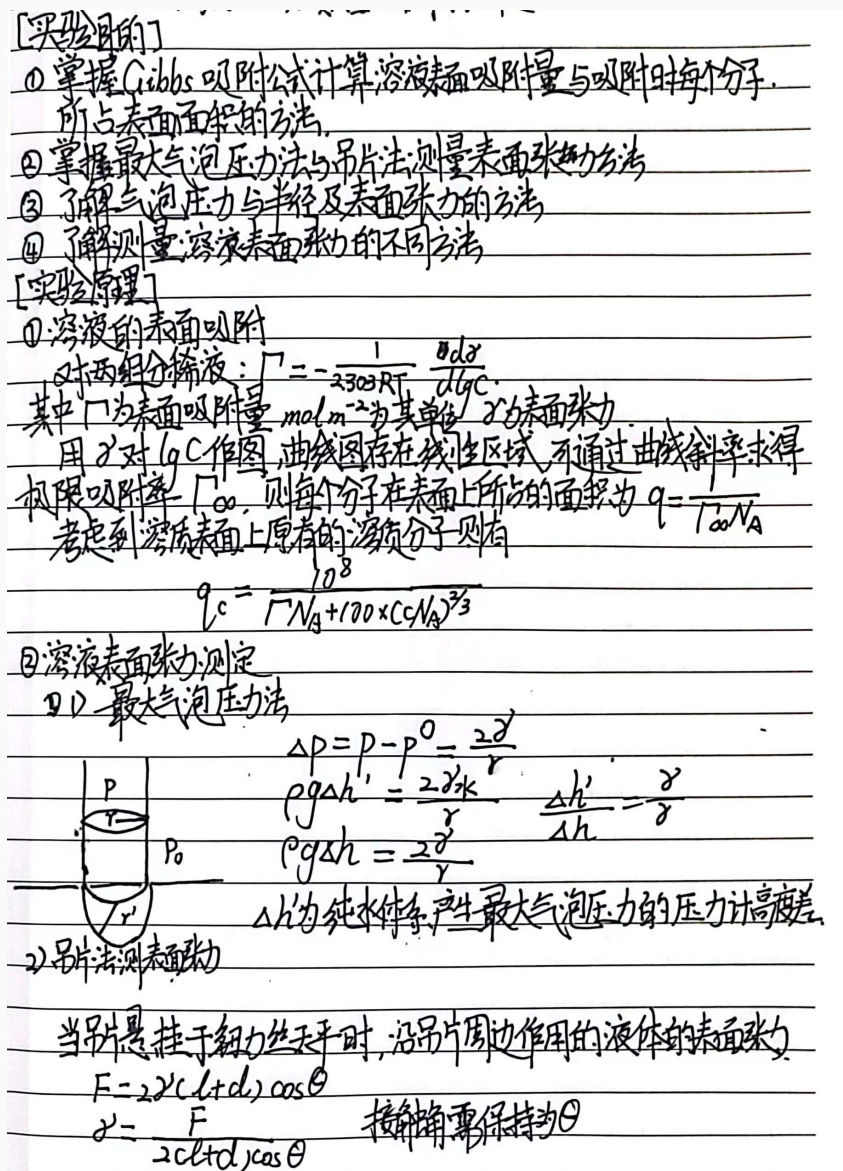 [实验目的]
① 掌握Gibbs吸附公式计算溶液表面吸附量与吸附时每个分子.
所占表面面积的方法.
② 掌握最大气泡压力法与吊片法测量表面张力方法
③ 了解气泡压力与半径及表面张力的方法
④ 了解测量溶液表面张力的不同方法
[实验原理]
①溶液的表面吸附
对两组分稀液: Γ = - 1/(2.303RT) dγ/dlgC.
其中Γ为表面吸附量 mol m⁻²为其单位 γ为表面张力.
用γ对lgC作图,曲线图存在线性区域,可通过曲线斜率求得
极限吸附率Γ∞, 则每个分子在表面上所占的面积为 q = 1/(Γ∞N_A)
考虑到溶质表面上原有的溶质分子则有
q_c = 10⁸/(ΓN_A+100×(CcN_A)^(2/3))
②溶液表面张力测定
1) 最大气泡压力法
Δp = p - p⁰ = 2γ/r
P
ρgΔh' = 2γ水/r Δh'/Δh = γ/γ
r
P₀
ρgΔh = 2γ/r
r'
Δh'为纯水体系产生最大气泡压力的压力计高度差.
2) 吊片法测表面张力
当吊片悬挂于扭力丝天平时, 沿吊片周边作用的液体的表面张力
F = 2γ(l+d) cosθ
γ = F/(2(l+d)cosθ) 接触角需保持为θ